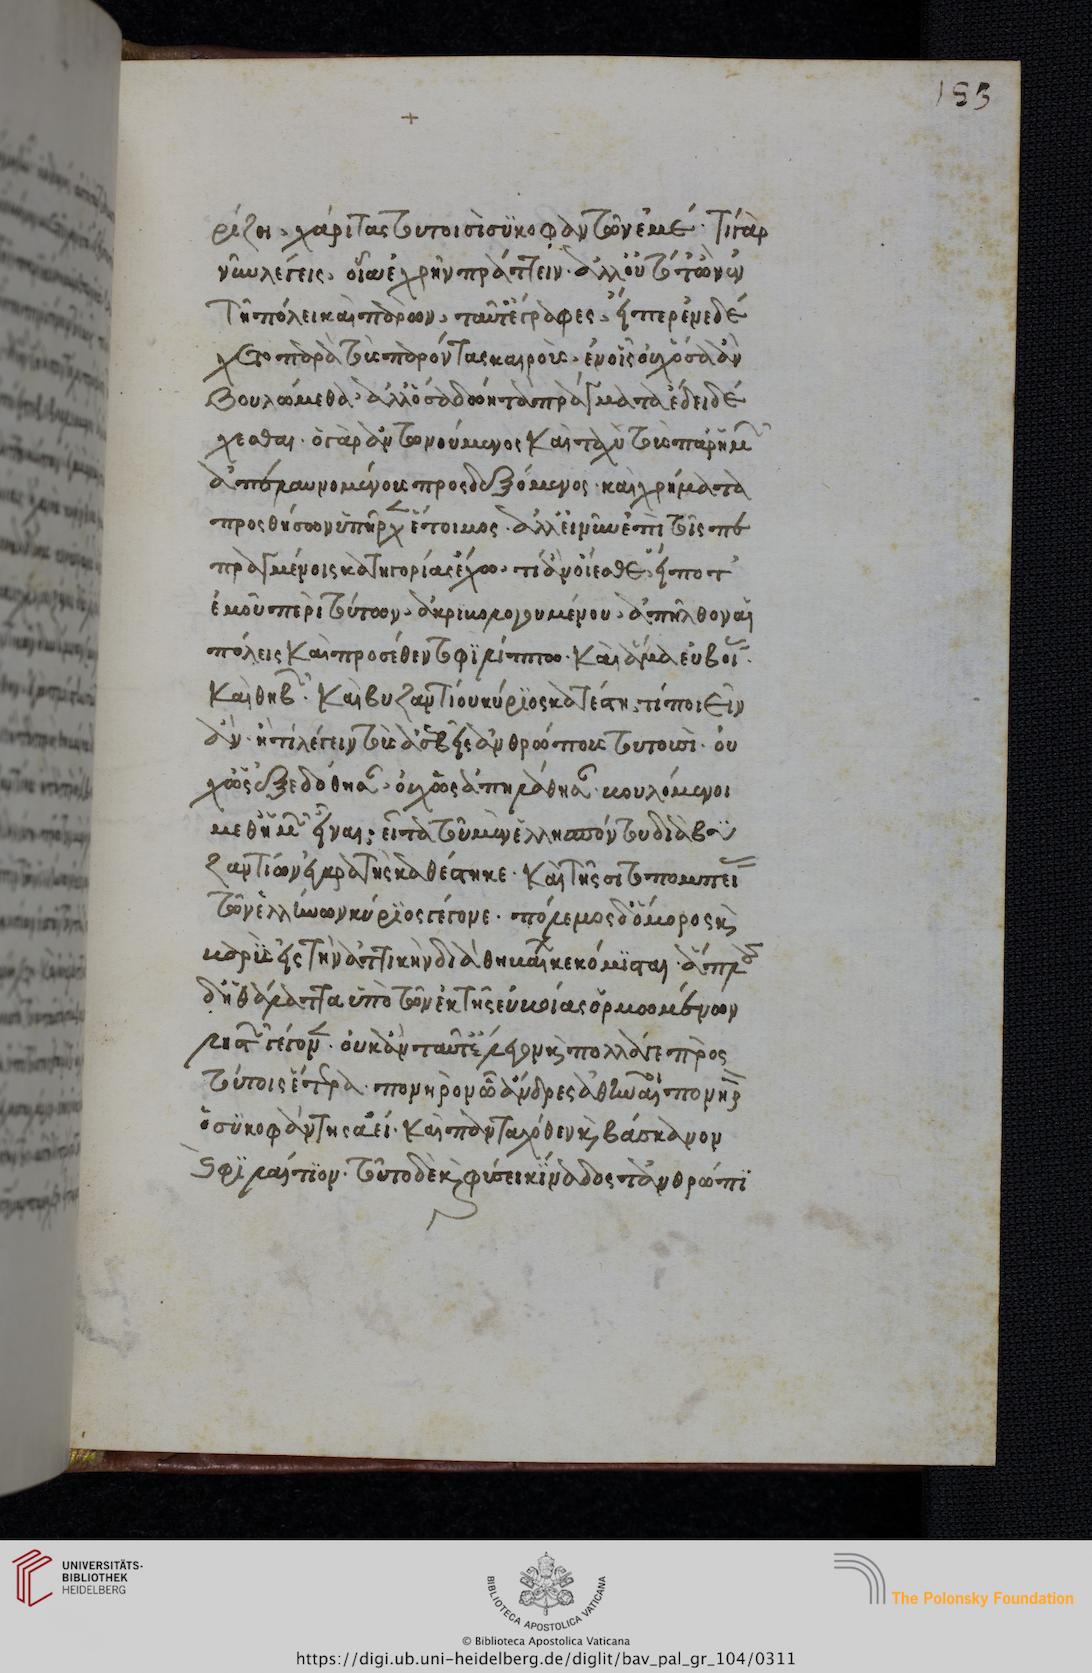 183
ρίζηι, χάριτας τουτοισὶ συκοφαντῶν ἐμέ. τί γὰρ
νῦν λέγεις, οἷαν ἐχρῆν πράττειν. ἀλλ' οὐ τότ' ὢν ἐν
τῆ πόλει καὶ παρὼν, ταῦτ' ἔγραφες, εἴπερ ἐνεδέ
χετο παρὰ τοὺς παρόντας καιροὺς, ἐν οἷς οὐχ ὅσα ἂν
βουλώμεθα, ἀλλ' ὅσα δώη τὰ πράγματα ἔδει δέ
χεσθαι. ὁ γὰρ ἀντωνούμενος καὶ ταχὺ τοὺς παρ' ἡμῶν
ἀπελαυνομένους προσδεξόμενος. καὶ χρήματα
προσθήσων ὑπῆρχεν ἕτοιμος. ἀλλ' εἰ νῦν ἐπὶ τοῖς πε
πραγμένοις κατηγορίας ἔχω, τί ἂν οἴεσθε, εἴ ποτ'
ἐμοῦ περὶ τούτων, ἀκριβολογουμένου, ἀπῆλθον αἱ
πόλεις καὶ προσέθεντο φιλίππω. καὶ ἅμα εὐβοίας.
καὶ θηβῶν. καὶ βυζαντίου κύριος κατέστη, τί ποιεῖν
ἂν. ἢ τί λέγειν τοὺς ἀσεβεῖς ἀνθρώπους τουτοισὶ. οὐ
χ ὡς ἐξεδόθησαν, οὐχ ὡς ἀπηλάθησαν βουλόμενοι
μεθ' ἡμῶν εἶναι; εἶτα τοῦ μὲν ἑλλησπόντου διὰ βυ
ζαντίων ἐγκρατὴς καθέστηκε. καὶ τῆς σιτοπομπείας
τῶν ἑλλήνων κύριος γέγονε. πόλεμος δ' ὅμορος καὶ
βαρὺς εἰς τὴν ἀττικὴν διὰ θηβαίων κεκόμισται. ἄπλους
δ' ἡ θάλαττα ὑπὸ τῶν ἐκ τῆς εὐβοίας ὁρμωμένων
ληστῶν γέγονεν. οὐκ ἂν ταῦτ' ἔλεγον καὶ πολλά γε πρὸς
τούτοις ἕτερα. πονηρὸν ὦ ἄνδρες ἀθηναῖοι πονηρὸν
ὁ συκοφάντης ἀεί. καὶ πανταχόθεν καὶ βάσκανον
καὶ φιλαίτιον. τοῦτο δὲ καὶ φύσει κίναδος τἀνθρώπι
UNIVERSITÄTS-
BIBLIOTHEK
HEIDELBERG
BIBLIOTECA APOSTOLICA VATICANA
The Polonsky Foundation
© Biblioteca Apostolica Vaticana
https://digi.ub.uni-heidelberg.de/diglit/bav_pal_gr_104/0311